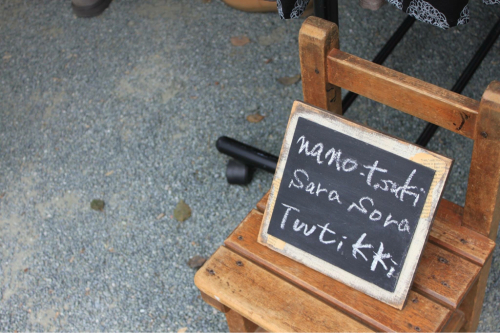 nano-tsuki
Sara Sora
Tuuti.KKi